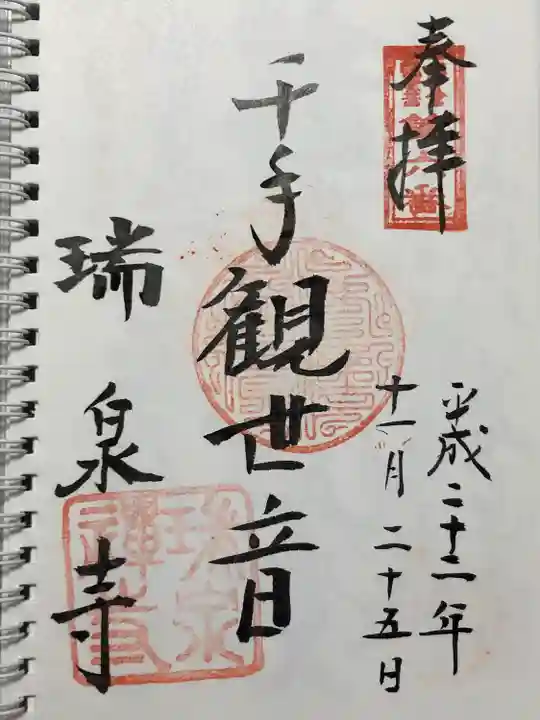 奉拝
平成二十二年
十一月二十五日
千手観世音
瑞泉寺
瑞泉
禅寺